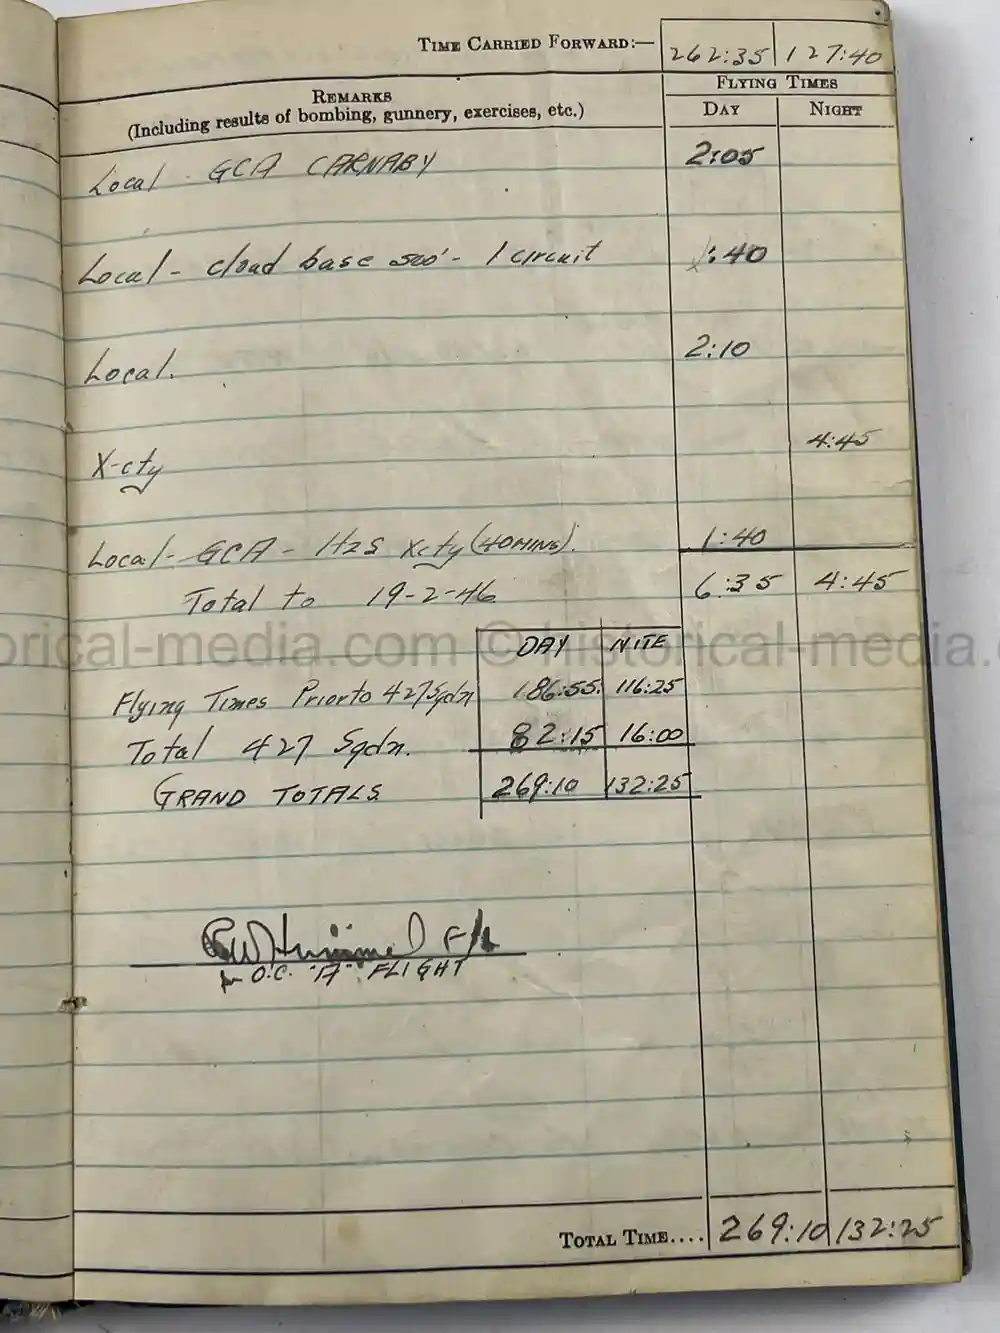 TIME CARRIED FORWARD:— 262:35 127:40
FLYING TIMES
REMARKS
(Including results of bombing, gunnery, exercises, etc.)
DAY NIGHT
Local - GCA CARNABY 2:05
Local - cloud base 500' - 1 circuit :40
Local. 2:10
X-cty 4:45
Local - GCA - H2S Xcty (40 MINS). 1:40
Total to 19-2-46 6:35 4:45
orical-media.com © historical-media.
DAY NITE
Flying Times Prior to 427 Sqdn 186:55 116:25
Total 427 Sqdn. 82:15 16:00
GRAND TOTALS 269:10 132:25
F/L
for O.C. "A" FLIGHT
TOTAL TIME.... 269:10 132:25